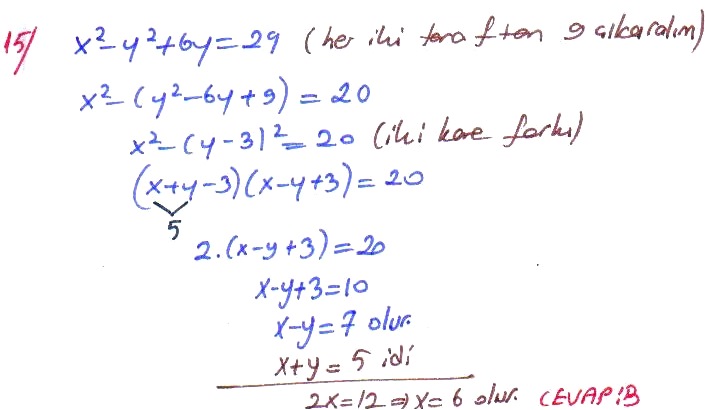 15/ x²-y²+6y=29 (her iki taraftan 9 çıkaralım)
x²-(y²-6y+9)=20
x²-(y-3)²=20 (iki kare farkı)
(x+y-3)(x-y+3)=20
5
2.(x-y+3)=20
x-y+3=10
x-y=7 olur.
x+y=5 idi
2x=12⇒x=6 olur. CEVAP:B